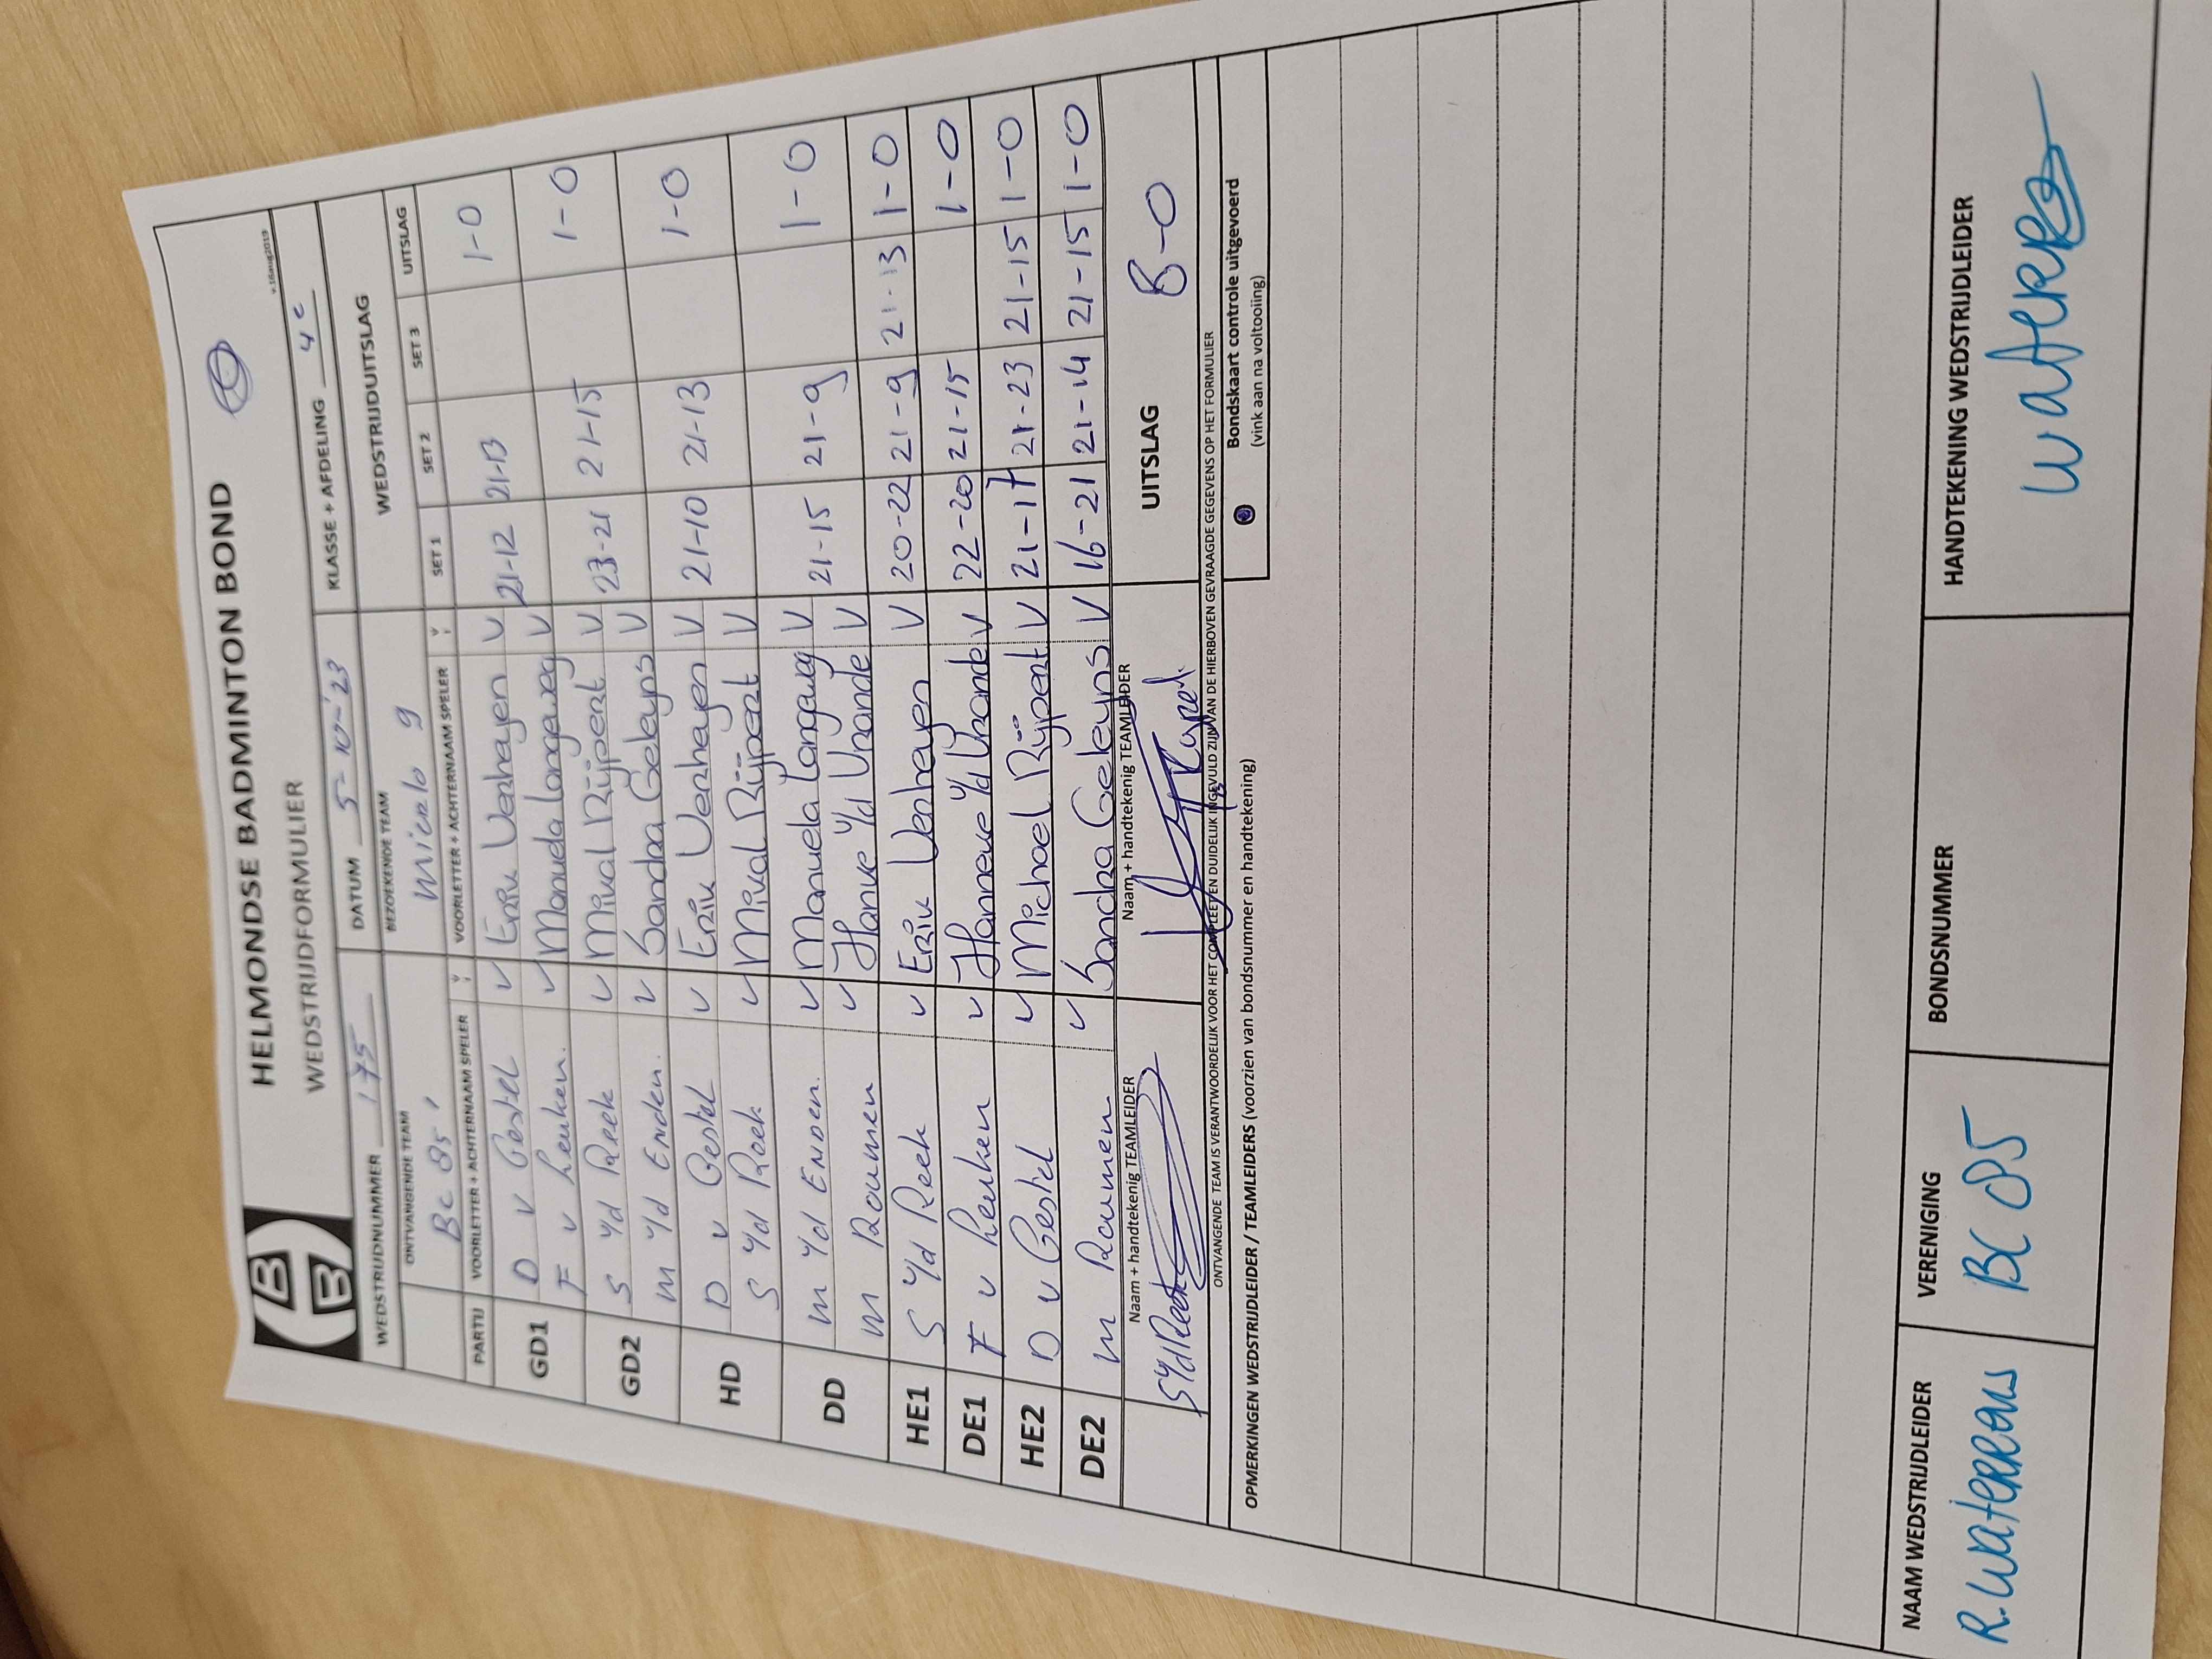 HELMONDSE BADMINTON BOND
v.16aug2019
WEDSTRIJDFORMULIER
WEDSTRIJDNUMMER 175 DATUM 5-10-'23 KLASSE + AFDELING 4c
ONTVANGENDE TEAM BEZOEKENDE TEAM WEDSTRIJDUITSLAG
BC 85 1 Mierlo 9
PARTIJ VOORLETTER + ACHTERNAAM SPELER V VOORLETTER + ACHTERNAAM SPELER V SET 1 SET 2 SET 3 UITSLAG
GD1 D v Gestel V Erik Verhayen V 21-12 21-13 1-0
F v Leuken. V Manuela Langeweg V
GD2 S v/d Reek V Mixal Rijpert V 23-21 21-15 1-0
M v/d Enden. V Sandra Geleyns V
HD D v Gestel V Erik Verhayen V 21-10 21-13 1-0
S v/d Reek V Mixal Rijpert V
DD M v/d Enden. V Manuela Langeweg V 21-15 21-9 1-0
M Roumen V Hanke v/d Vrande V
HE1 S v/d Reek V Erik Verhayen V 20-22 21-9 21-13 1-0
DE1 F v Leuken V Hanneke v/d Vrande V 22-20 21-15 1-0
HE2 D v Gestel V Michael Rijpert V 21-17 21-23 21-15 1-0
DE2 M Roumen V Sandra Geleyns V 16-21 21-14 21-15 1-0
Naam + handtekenig TEAMLEIDER Naam + handtekenig TEAMLEIDER UITSLAG 8-0
S v/d Reek
ONTVANGENDE TEAM IS VERANTWOORDELIJK VOOR HET COMPLEET EN DUIDELIJK INGEVULD ZIJN VAN DE HIERBOVEN GEVRAAGDE GEGEVENS OP HET FORMULIER
OPMERKINGEN WEDSTRIJDLEIDER / TEAMLEIDERS (voorzien van bondsnummer en handtekening)
Bondskaart controle uitgevoerd
(vink aan na voltooiing)
NAAM WEDSTRIJDLEIDER VERENIGING BONDSNUMMER HANDTEKENING WEDSTRIJDLEIDER
R. Waterreus BC 85